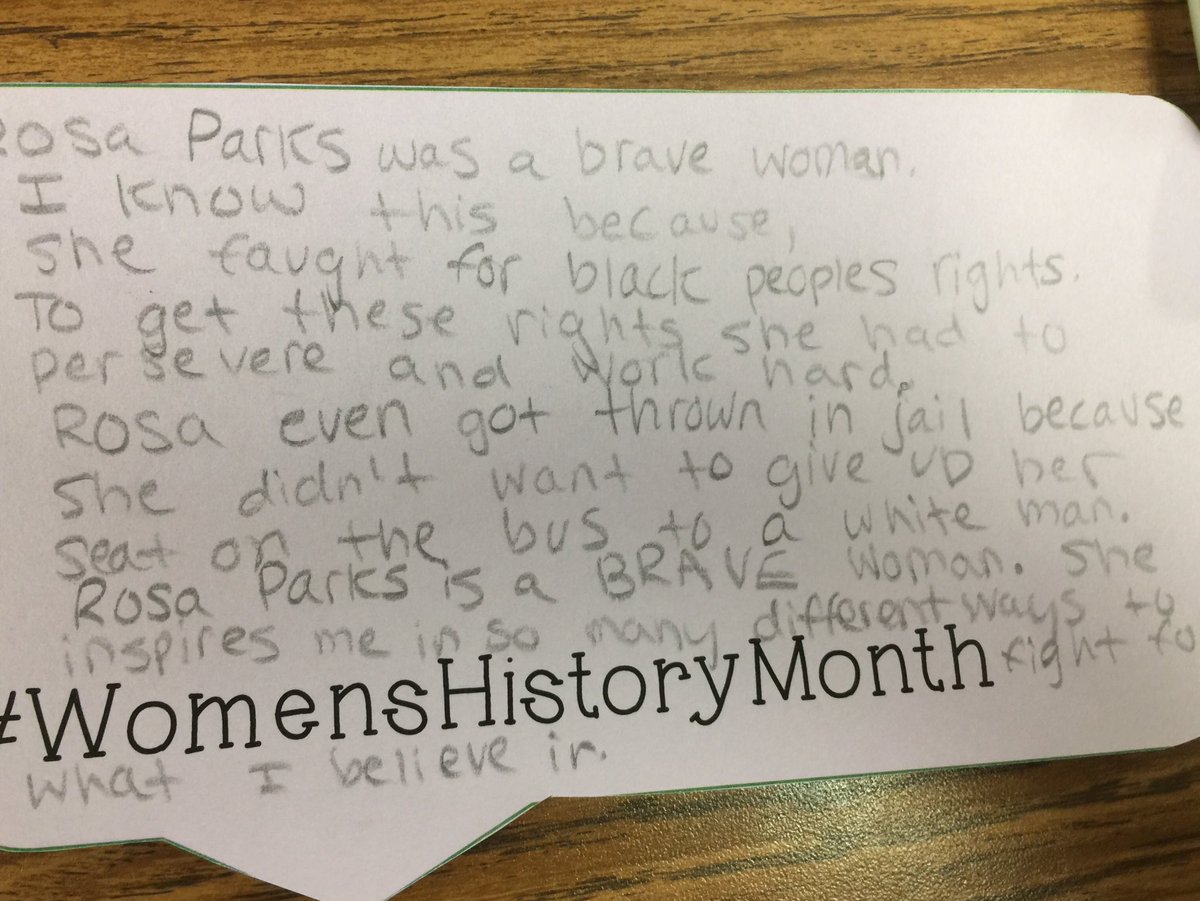 Rosa Parks was a brave woman.
I know this because,
she faught for black peoples rights.
To get these rights she had to
persevere and work hard.
Rosa even got thrown in jail because
she didn't want to give up her
seat on the bus to a white man.
Rosa Parks is a BRAVE woman. She
inspires me in so many different ways to
#WomensHistoryMonth fight to
what I believe in.